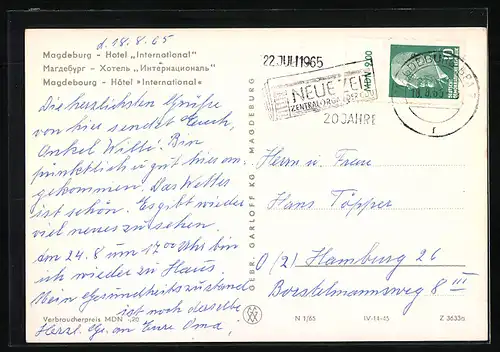 d. 18.8.65
Magdeburg - Hotel „International"
Магдебург - Хотель „Интернациональ"
Magdebourg - Hôtel »International«
22 JULI 1965
NEUE ZEIT
ZENTRALORGAN
20 JAHRE
MDN 9,00
10
MAGDEBURG
18.8.65
r
Die herzlichsten Grüße
von hier sendet Euch,
Onkel Willi. Bin
pünktlich u. gut hier an-
gekommen. Das Wetter
ist schön. Es gibt wieder
viel neues zu sehen.
Am 24.8 um 17⁰⁰ Uhr bin
ich wieder zu Haus.
Mein Gesundheitszustand
ist noch derselbe
Herzl. Gr. an Eure Oma,
Herrn u. Frau
Hans Töpper
(2) Hamburg 26
Borstelmannsweg 8 III
GEBR. GARLOFF KG. MAGDEBURG
Verbraucherpreis MDN 0,20
N 1/65
IV-14-45
Z 3633a